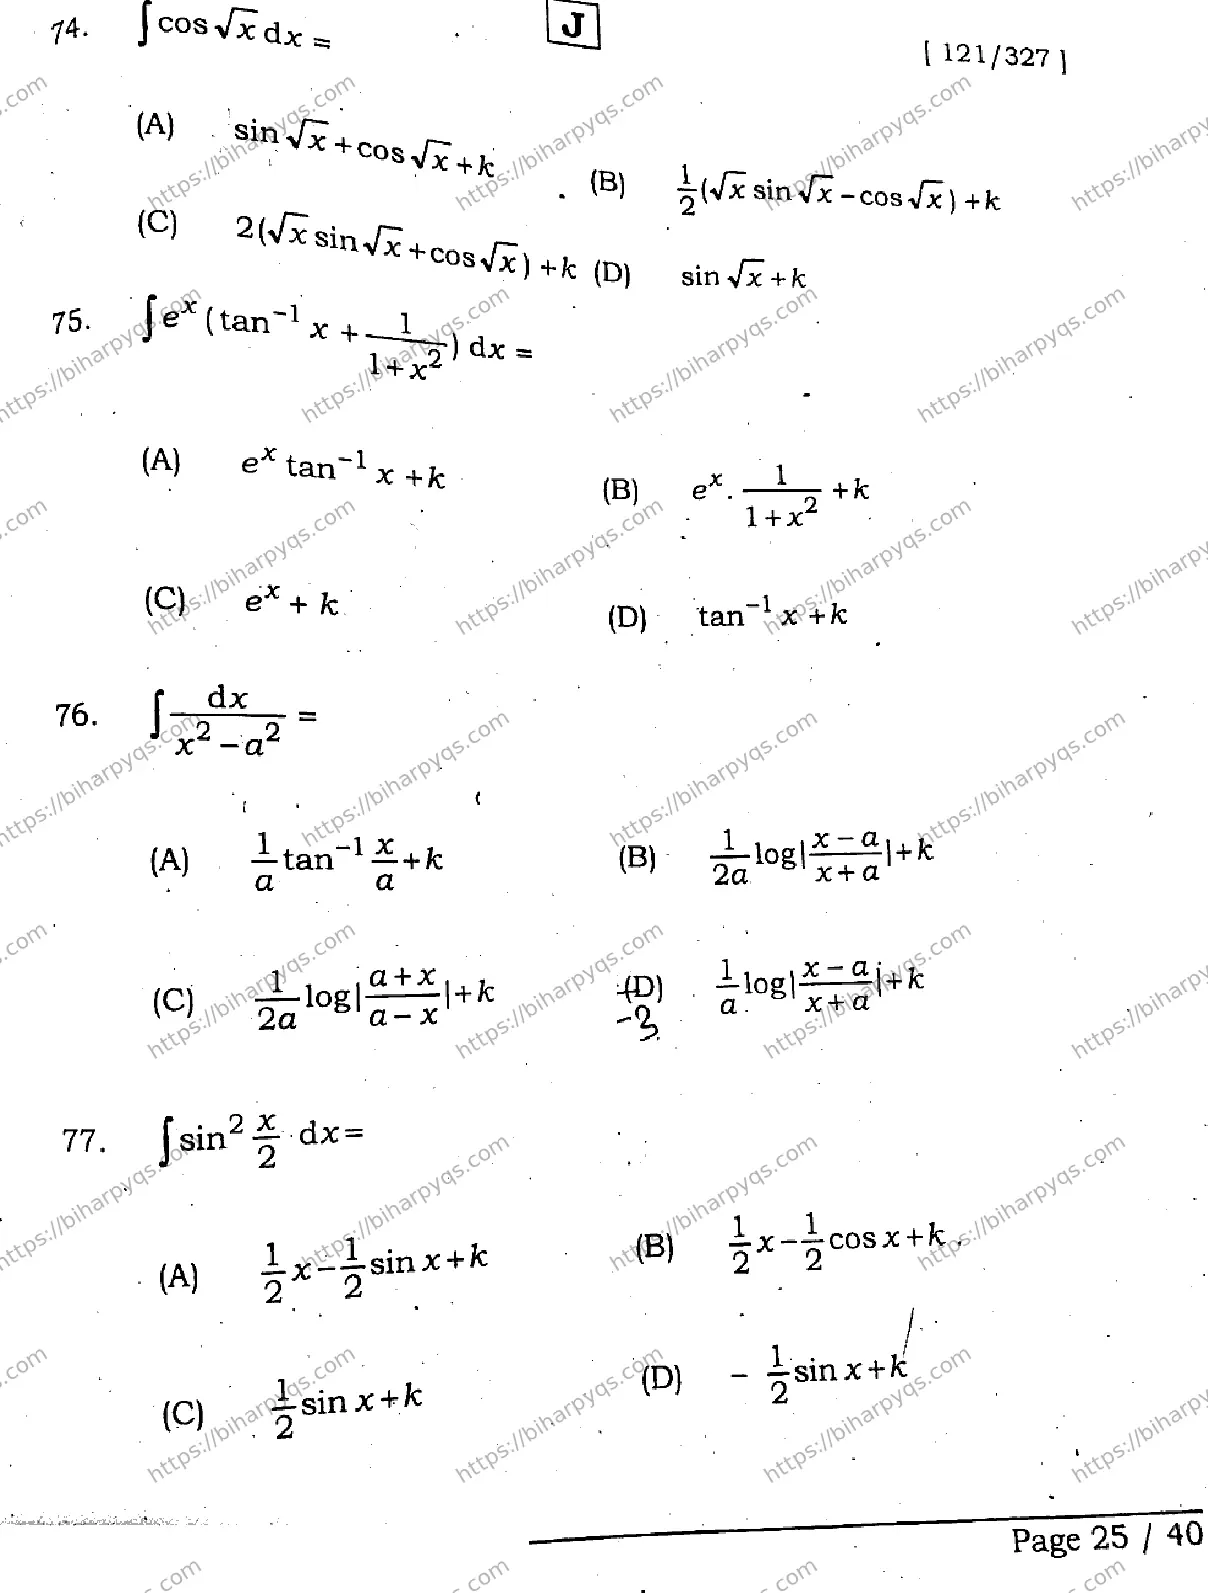 74. ∫cos √x dx =
J
[ 121/327 ]
(A) sin √x + cos √x + k
(B) 1/2 (√x sin √x - cos √x) + k
(C) 2(√x sin √x + cos √x) + k
(D) sin √x + k
75. ∫e^x (tan^-1 x + 1/(1+x^2)) dx =
(A) e^x tan^-1 x + k
(B) e^x . 1/(1+x^2) + k
(C) e^x + k
(D) tan^-1 x + k
76. ∫ dx/(x^2 - a^2) =
(A) 1/a tan^-1 x/a + k
(B) 1/2a log|(x-a)/(x+a)| + k
(C) 1/2a log|(a+x)/(a-x)| + k
(D) 1/a log|(x-a)/(x+a)| + k
77. ∫sin^2 x/2 dx =
(A) 1/2 x - 1/2 sin x + k
(B) 1/2 x - 1/2 cos x + k
(C) 1/2 sin x + k
(D) - 1/2 sin x + k
Page 25 / 40
https://biharpyqs.com